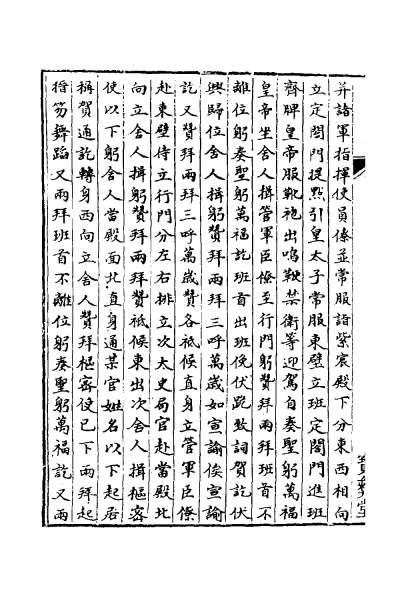 并諸軍指揮使員僚並常服詣紫宸殿下分東西相向
立定閤門提點引皇太子常服東壁立班定閤門進班
齊牌皇帝服靴袍出鳴鞭禁衛等迎駕自奏聖躬萬福
皇帝坐舍人揖管軍臣僚至行門躬贊拜兩拜班首不
離位躬奏聖躬萬福訖班首出班俛伏跪致詞賀訖伏
興歸位舍人揖躬贊拜兩拜三呼萬歲如宣諭俟宣諭
訖又贊拜兩拜三呼萬歲贊各祗候直身立管軍臣僚
赴東壁侍立行門分左右排立次太史局官赴當殿北
向立舍人揖躬贊拜兩拜贊祗候東出次舍人揖樞密
使以下躬舍人當殿面北直身通某官姓名以下起居
稱賀通訖轉身西向立舍人贊拜樞密使已下兩拜起
搢笏舞蹈又兩拜班首不離位躬奏聖躬萬福訖又兩